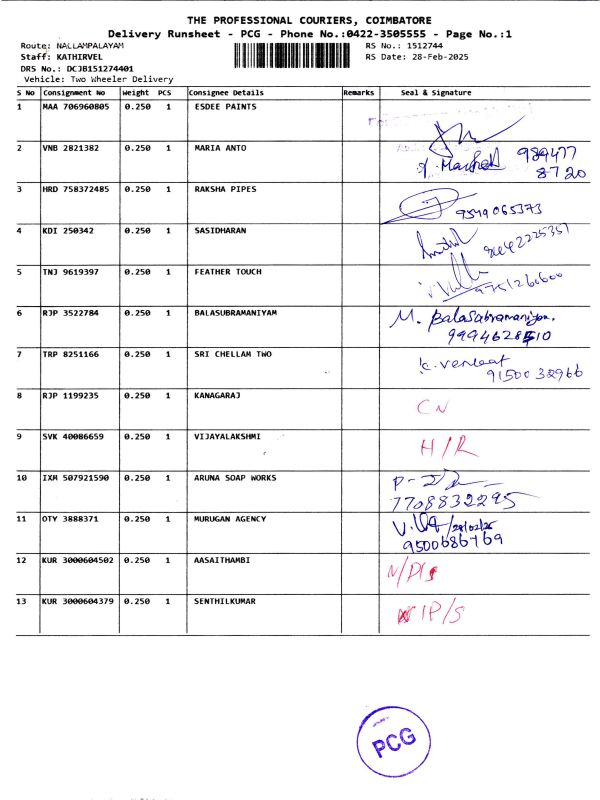 THE PROFESSIONAL COURIERS, COIMBATORE
Delivery Runsheet - PCG - Phone No.:0422-3505555 - Page No.:1
Route: NALLAMPALAYAM RS No.: 1512744
Staff: KATHIRVEL RS Date: 28-Feb-2025
DRS No.: DCJB151274401
Vehicle: Two Wheeler Delivery
S No Consignment No Weight PCS Consignee Details Remarks Seal & Signature
1 MAA 706960805 0.250 1 ESDEE PAINTS
2 VNB 2821382 0.250 1 MARIA ANTO 989477
8720
3 HRD 758372485 0.250 1 RAKSHA PIPES
9549065373
4 KDI 250342 0.250 1 SASIDHARAN
5 TNJ 9619397 0.250 1 FEATHER TOUCH
9751260600
6 RJP 3522784 0.250 1 BALASUBRAMANIYAM M. Balasubramaniyan.
7 TRP 8251166 0.250 1 SRI CHELLAM TWO
9150032966
8 RJP 1199235 0.250 1 KANAGARAJ CN
9 SVK 40086659 0.250 1 VIJAYALAKSHMI H/R
10 IXM 507921590 0.250 1 ARUNA SOAP WORKS
7708832295
11 OTY 3888371 0.250 1 MURUGAN AGENCY
9500686769
12 KUR 3000604502 0.250 1 AASAITHAMBI
13 KUR 3000604379 0.250 1 SENTHILKUMAR IP/S
PCG